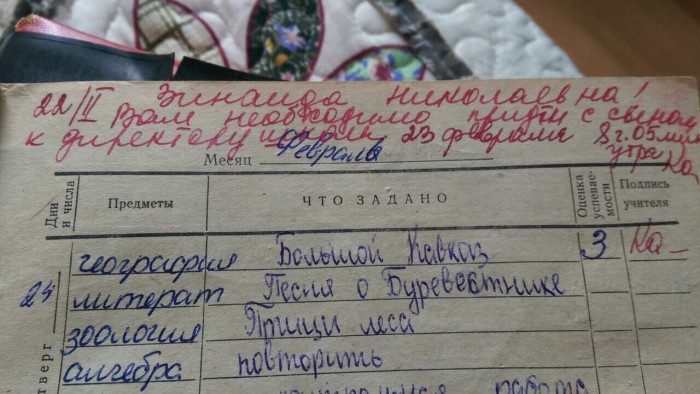 22/II Зинаида Николаевна!
Вам необходимо прийти с сыном
к директору школы 23 февраля 8 г. 05 мин
утра
Месяц Февраль
Дни и числа
Предметы
ЧТО ЗАДАНО
Оценка успевае-мости
Подпись учителя
география Большой Кавказ 3 Ка
24 литерат Песня о Буревестнике
зоология Птицы леса
алгебра повторить
тверг
работа